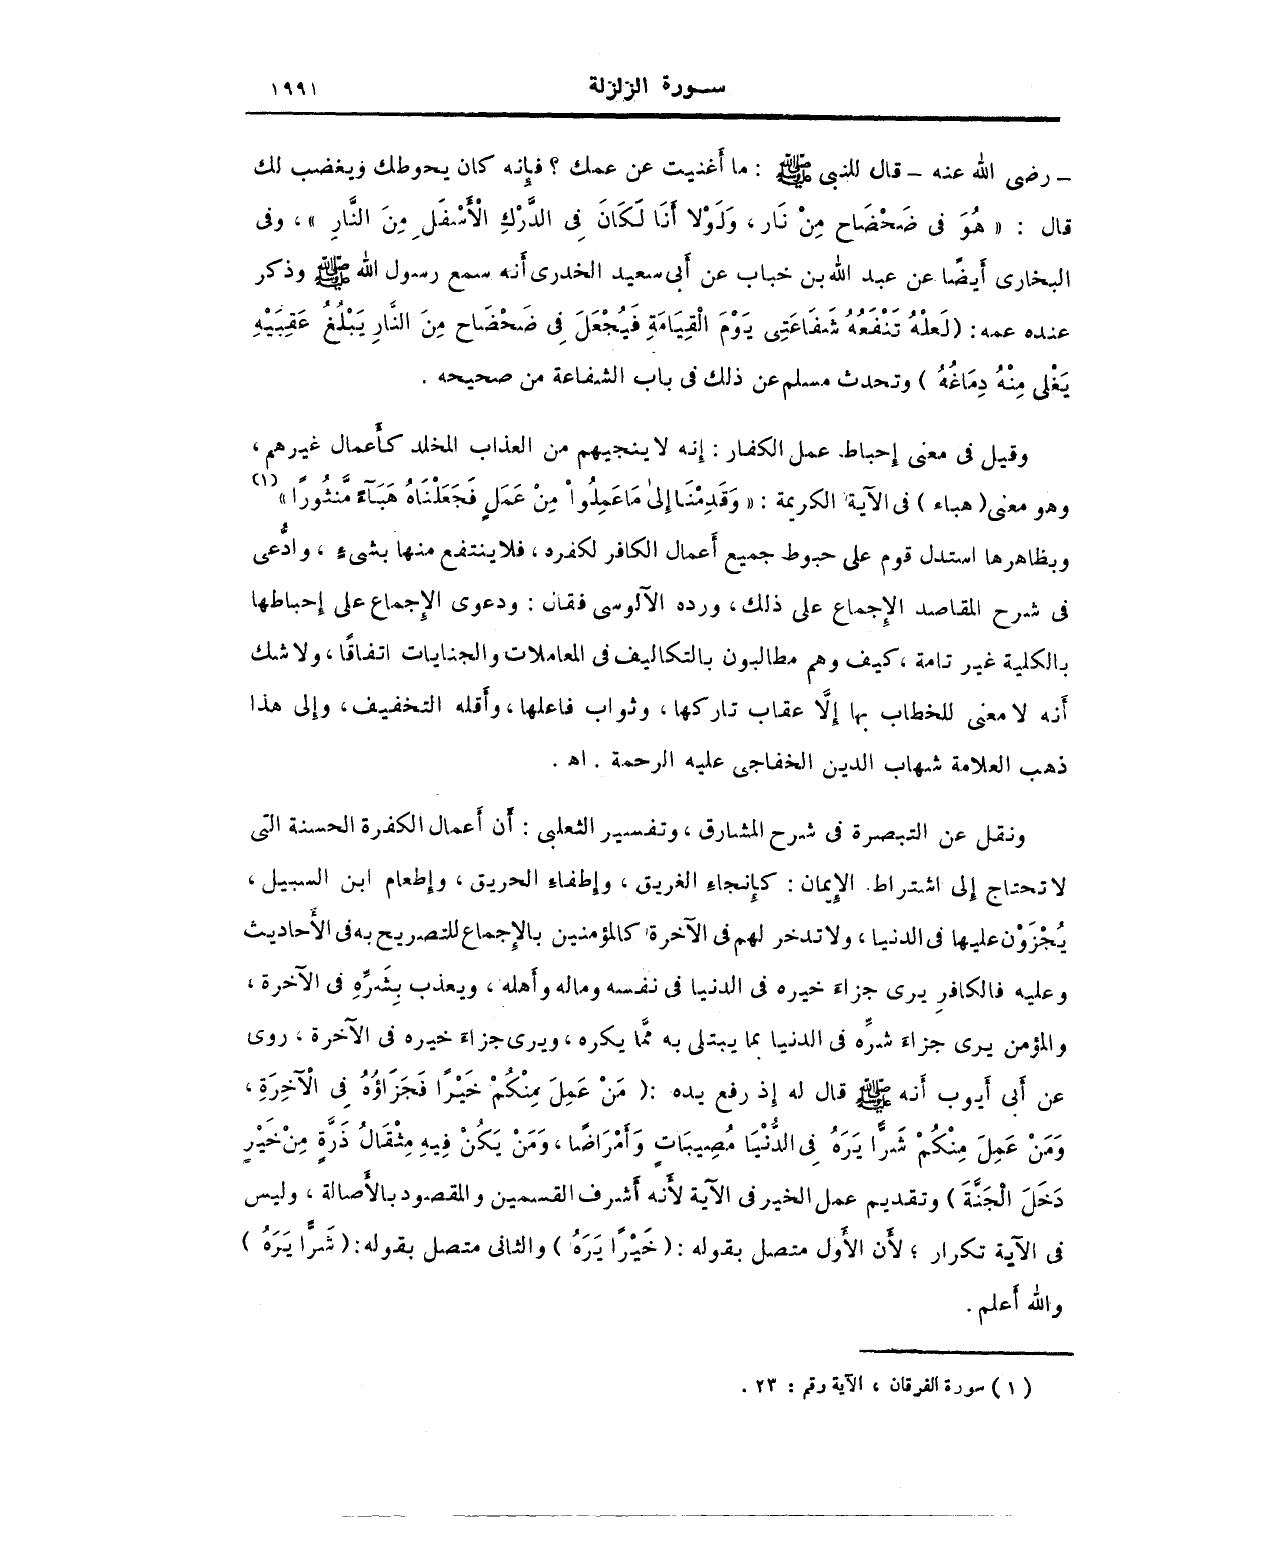 سورة الزلزلة ١٩٩١
– رضى الله عنه – قال للنبى ﷺ : ما أغنيت عن عمك ؟ فإنه كان يحوطك ويغضب لك
قال : « هُوَ فى ضَحْضَاح مِنْ نَار ، وَلَوْلا أَنَا لَكَانَ فِى الدَّرْكِ الْأَسْفَلِ مِنَ النَّارِ » ، وفى
البخارى أيضًا عن عبد الله بن خباب عن أبى سعيد الخدرى أنه سمع رسول الله ﷺ وذكر
عنده عمه : ( لَعلَّهُ تَنْفَعُهُ شَفَاعَتِى يَوْمَ الْقِيَامَةِ فَيُجْعَلَ فِى ضَحْضَاح مِنَ النَّارِ يَبْلُغُ عَقِبَيْهِ
يَغْلِى مِنْهُ دِمَاغُهُ ) وتحدث مسلم عن ذلك فى باب الشفاعة من صحيحه .
وقيل فى معنى إحباط عمل الكفار : إنه لا ينجيهم من العذاب المخلد كأعمال غيرهم ،
وهو معنى ( هباء ) فى الآية الكريمة : « وَقَدِمْنَا إِلىٰ مَا عَمِلُواْ مِنْ عَمَلٍ فَجَعَلْنَاهُ هَبَآءً مَّنثُورًا » (١)
وبظاهرها استدل قوم على حبوط جميع أعمال الكافر لكفره ، فلا ينتفع منها بشىءٍ ، وادُّعى
فى شرح المقاصد الإجماع على ذلك ، ورده الآلوسى فقال : ودعوى الإجماع على إحباطها
بالكلية غير تامة ، كيف وهم مطالبون بالتكاليف فى المعاملات والجنايات اتفاقًا ، ولا شك
أنه لا معنى للخطاب بها إلَّا عقاب تاركها ، وثواب فاعلها ، وأقله التخفيف ، وإلى هذا
ذهب العلامة شهاب الدين الخفاجى عليه الرحمة . اه .
ونقل عن التبصرة فى شرح المشارق ، وتفسير الثعلبى : أن أعمال الكفرة الحسنة التى
لا تحتاج إلى اشتراط الإيمان : كإنجاءِ الغريق ، وإطفاءِ الحريق ، وإطعام ابن السبيل ،
يُجْزَوْن عليها فى الدنيا ، ولا تدخر لهم فى الآخرة كالمؤمنين بالإجماع للتصريح به فى الأحاديث
وعليه فالكافر يرى جزاءَ خيره فى الدنيا فى نفسه وماله وأهله ، ويعذب بِشَرِّهِ فى الآخرة ،
والمؤمن يرى جزاءَ شرِّه فى الدنيا بما يبتلى به ممَّا يكره ، ويرى جزاءَ خيره فى الآخرة ، روى
عن أبى أيوب أنه ﷺ قال له إذ رفع يده : ( مَنْ عَمِلَ مِنْكُمْ خَيْرًا فَجَزَاؤُهُ فِى الْآخِرَةِ ،
وَمَنْ عَمِلَ مِنْكُمْ شَرًّا يَرَهُ فِى الدُّنْيَا مُصِيبَاتٍ وَأَمْرَاضًا ، وَمَنْ يَكُنْ فِيهِ مِثْقَالُ ذَرَّةٍ مِنْ خَيْرٍ
دَخَلَ الْجَنَّةَ ) وتقديم عمل الخير فى الآية لأنه أشرف القسمين والمقصود بالأصالة ، وليس
فى الآية تكرار ؛ لأن الأول متصل بقوله : ( خَيْرًا يَرَهُ ) والثانى متصل بقوله : ( شَرًّا يَرَهُ )
والله أعلم .
( ١ ) سورة الفرقان ، الآية رقم : ٢٣ .